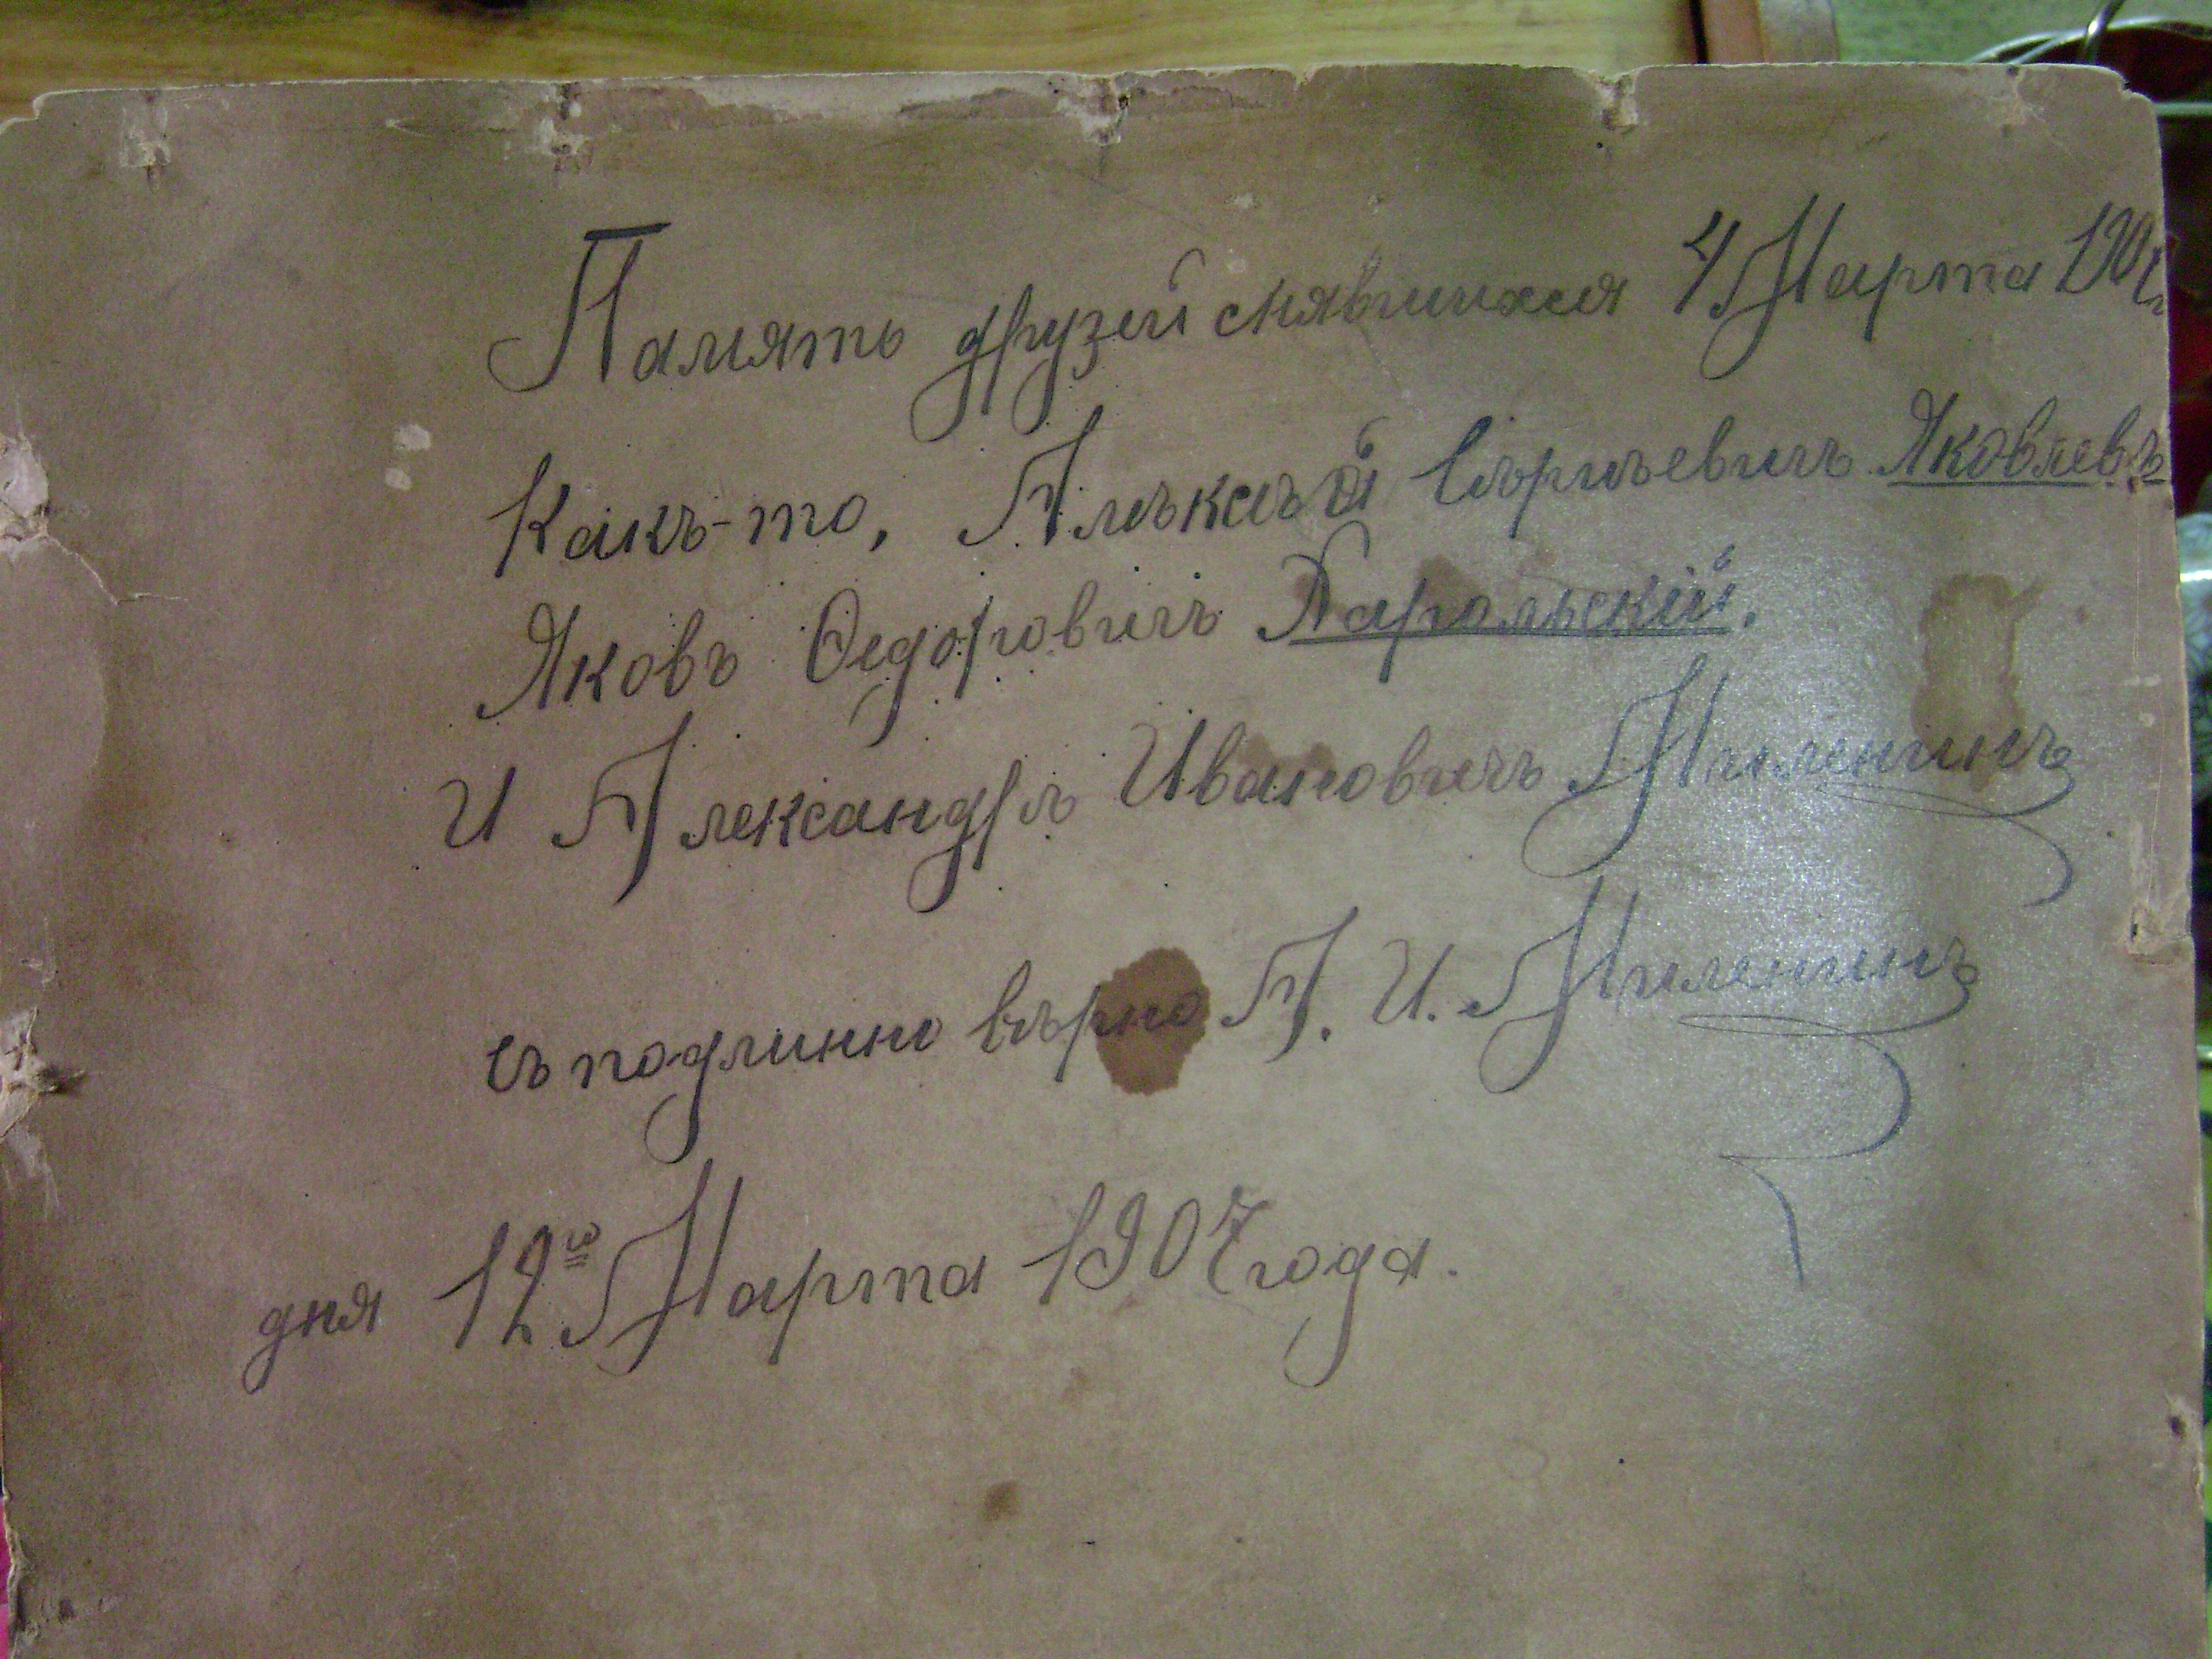 Память друзей снявшихся 4 Марта 1907 г
Какъ-то, Алѣксѣй Сѣргѣевичъ Яковлевъ
Яковъ Ѳедоровичъ Харальскій.
И Александръ Ивановичъ Миленинъ
съ подлинно вѣрно А. И. Миленинъ
дня 12го Марта 1907 года.